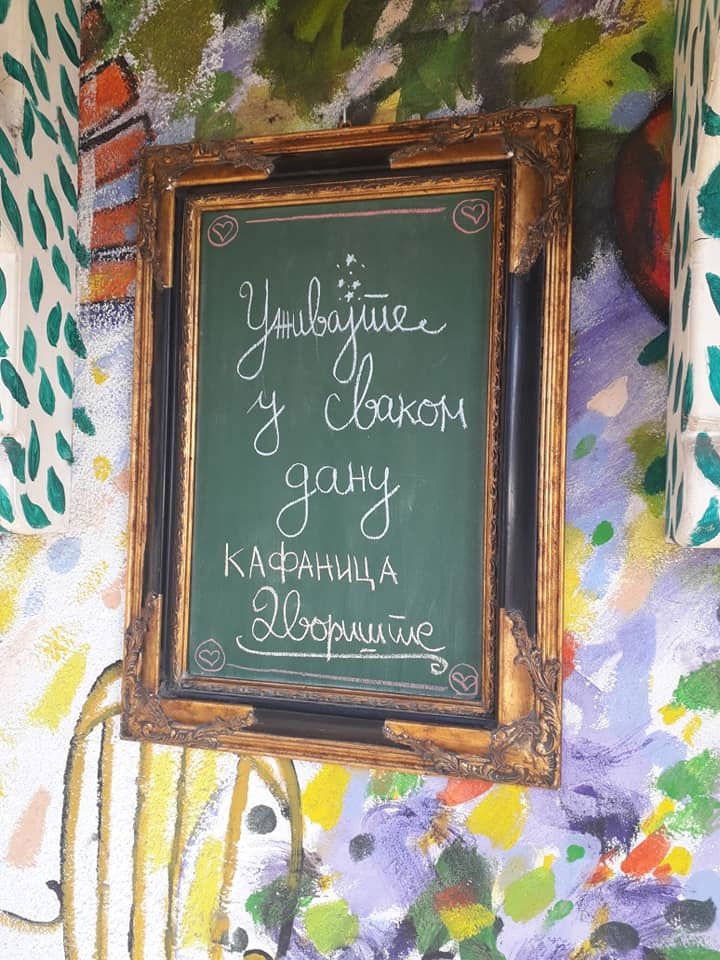 Уживајте
у сваком
дану
КАФАНИЦА
Двориште